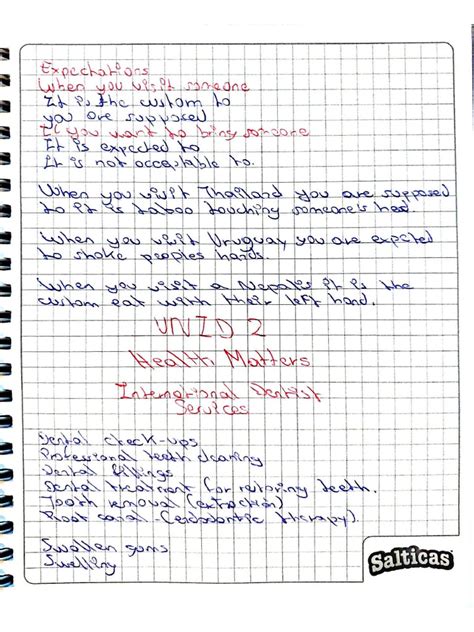 Expectations
When you visit someone
It is the custom to
you are supposed
If you want to bring someone
It is expected to
It is not acceptable to.
When you visit Thailand you are supposed
to it is taboo touching someone's head.
When you visit Uruguay you are expected
to shake peoples hands.
When you visit a Nepalis it is the
custom eat with their left hand.
UNID 2
Health Matters
International Dentist
Services
Dental check-ups
Professional teeth cleaning
Dental fillings
Dental treatment for restoring teeth.
Tooth removal (extraction)
Root canal (endodontic therapy).
Swollen gums
Swelling
Salticas